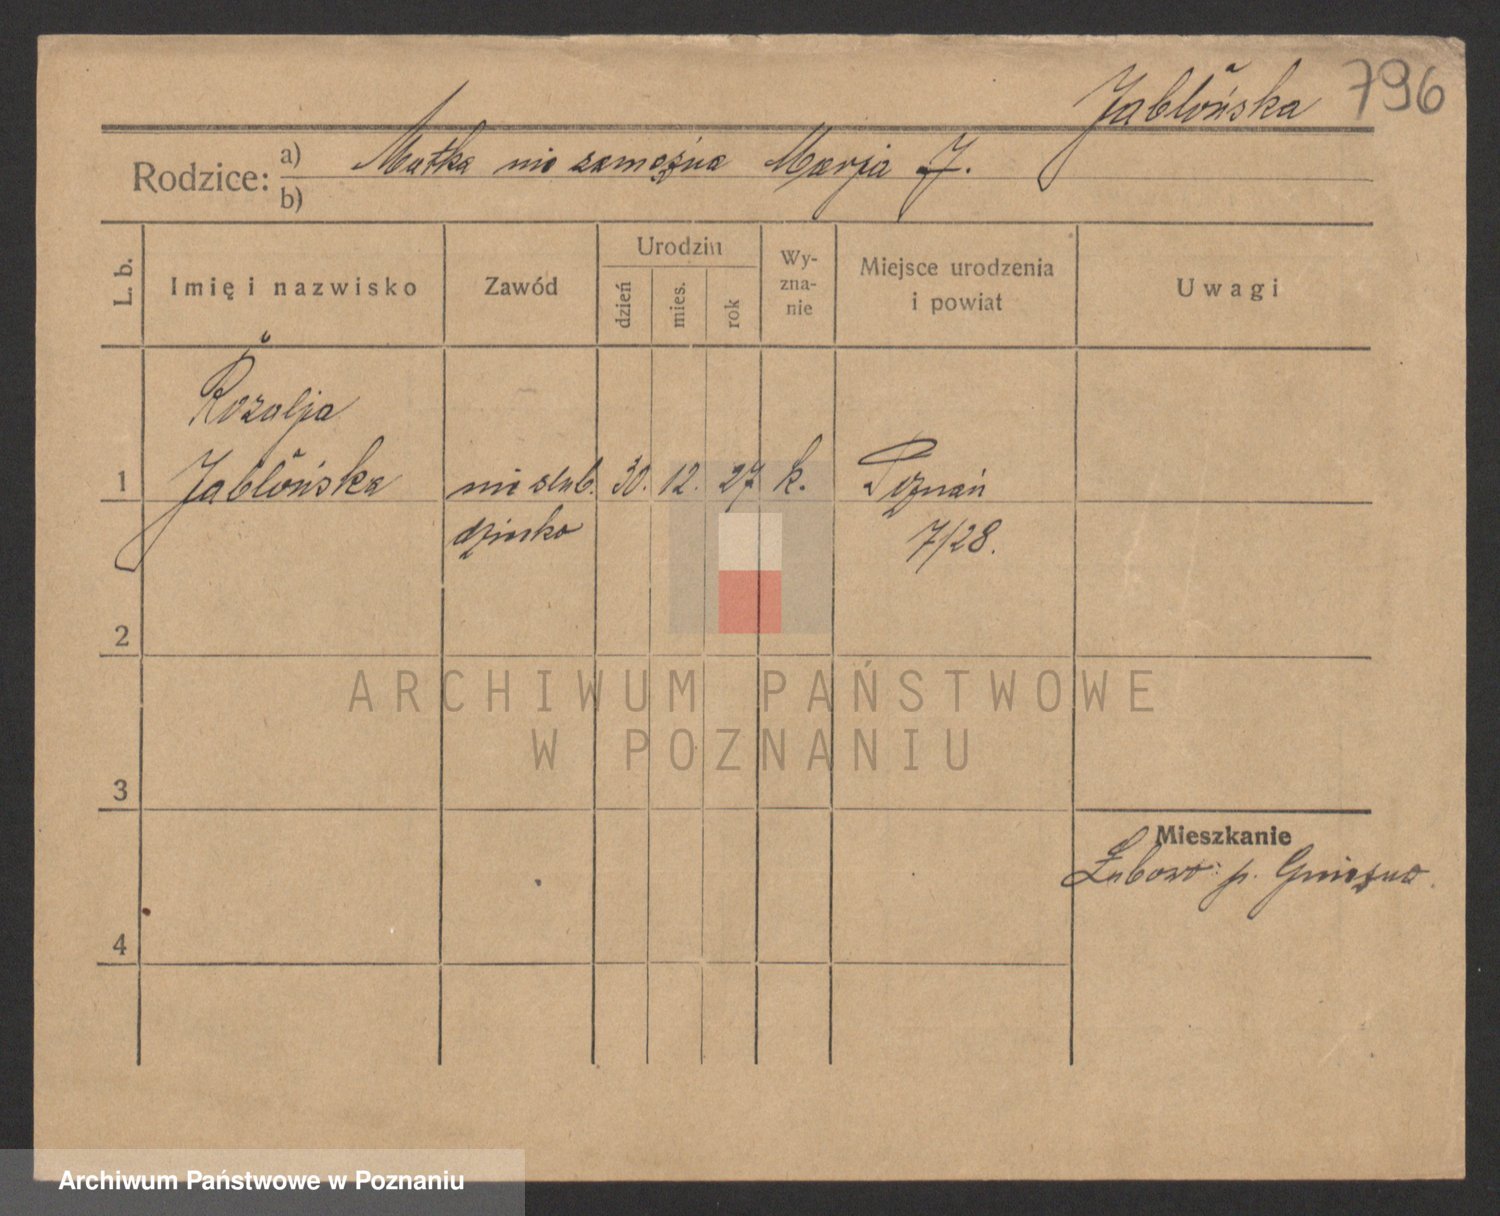 Jabłońska 796
Rodzice: a) Matka nie zamężna Marja J.
b)
L. b.
Imię i nazwisko
Zawód
Urodzin
dzień
mies.
rok
Wy-
zna-
nie
Miejsce urodzenia
i powiat
Uwagi
Rozalja
1 Jabłońska nie ślub. 30. 12. 27 k. Poznań
dziecko 7/28.
2
ARCHIWUM PAŃSTWOWE
W POZNANIU
3
Mieszkanie
Łubowo p. Gniezno.
4
Archiwum Państwowe w Poznaniu